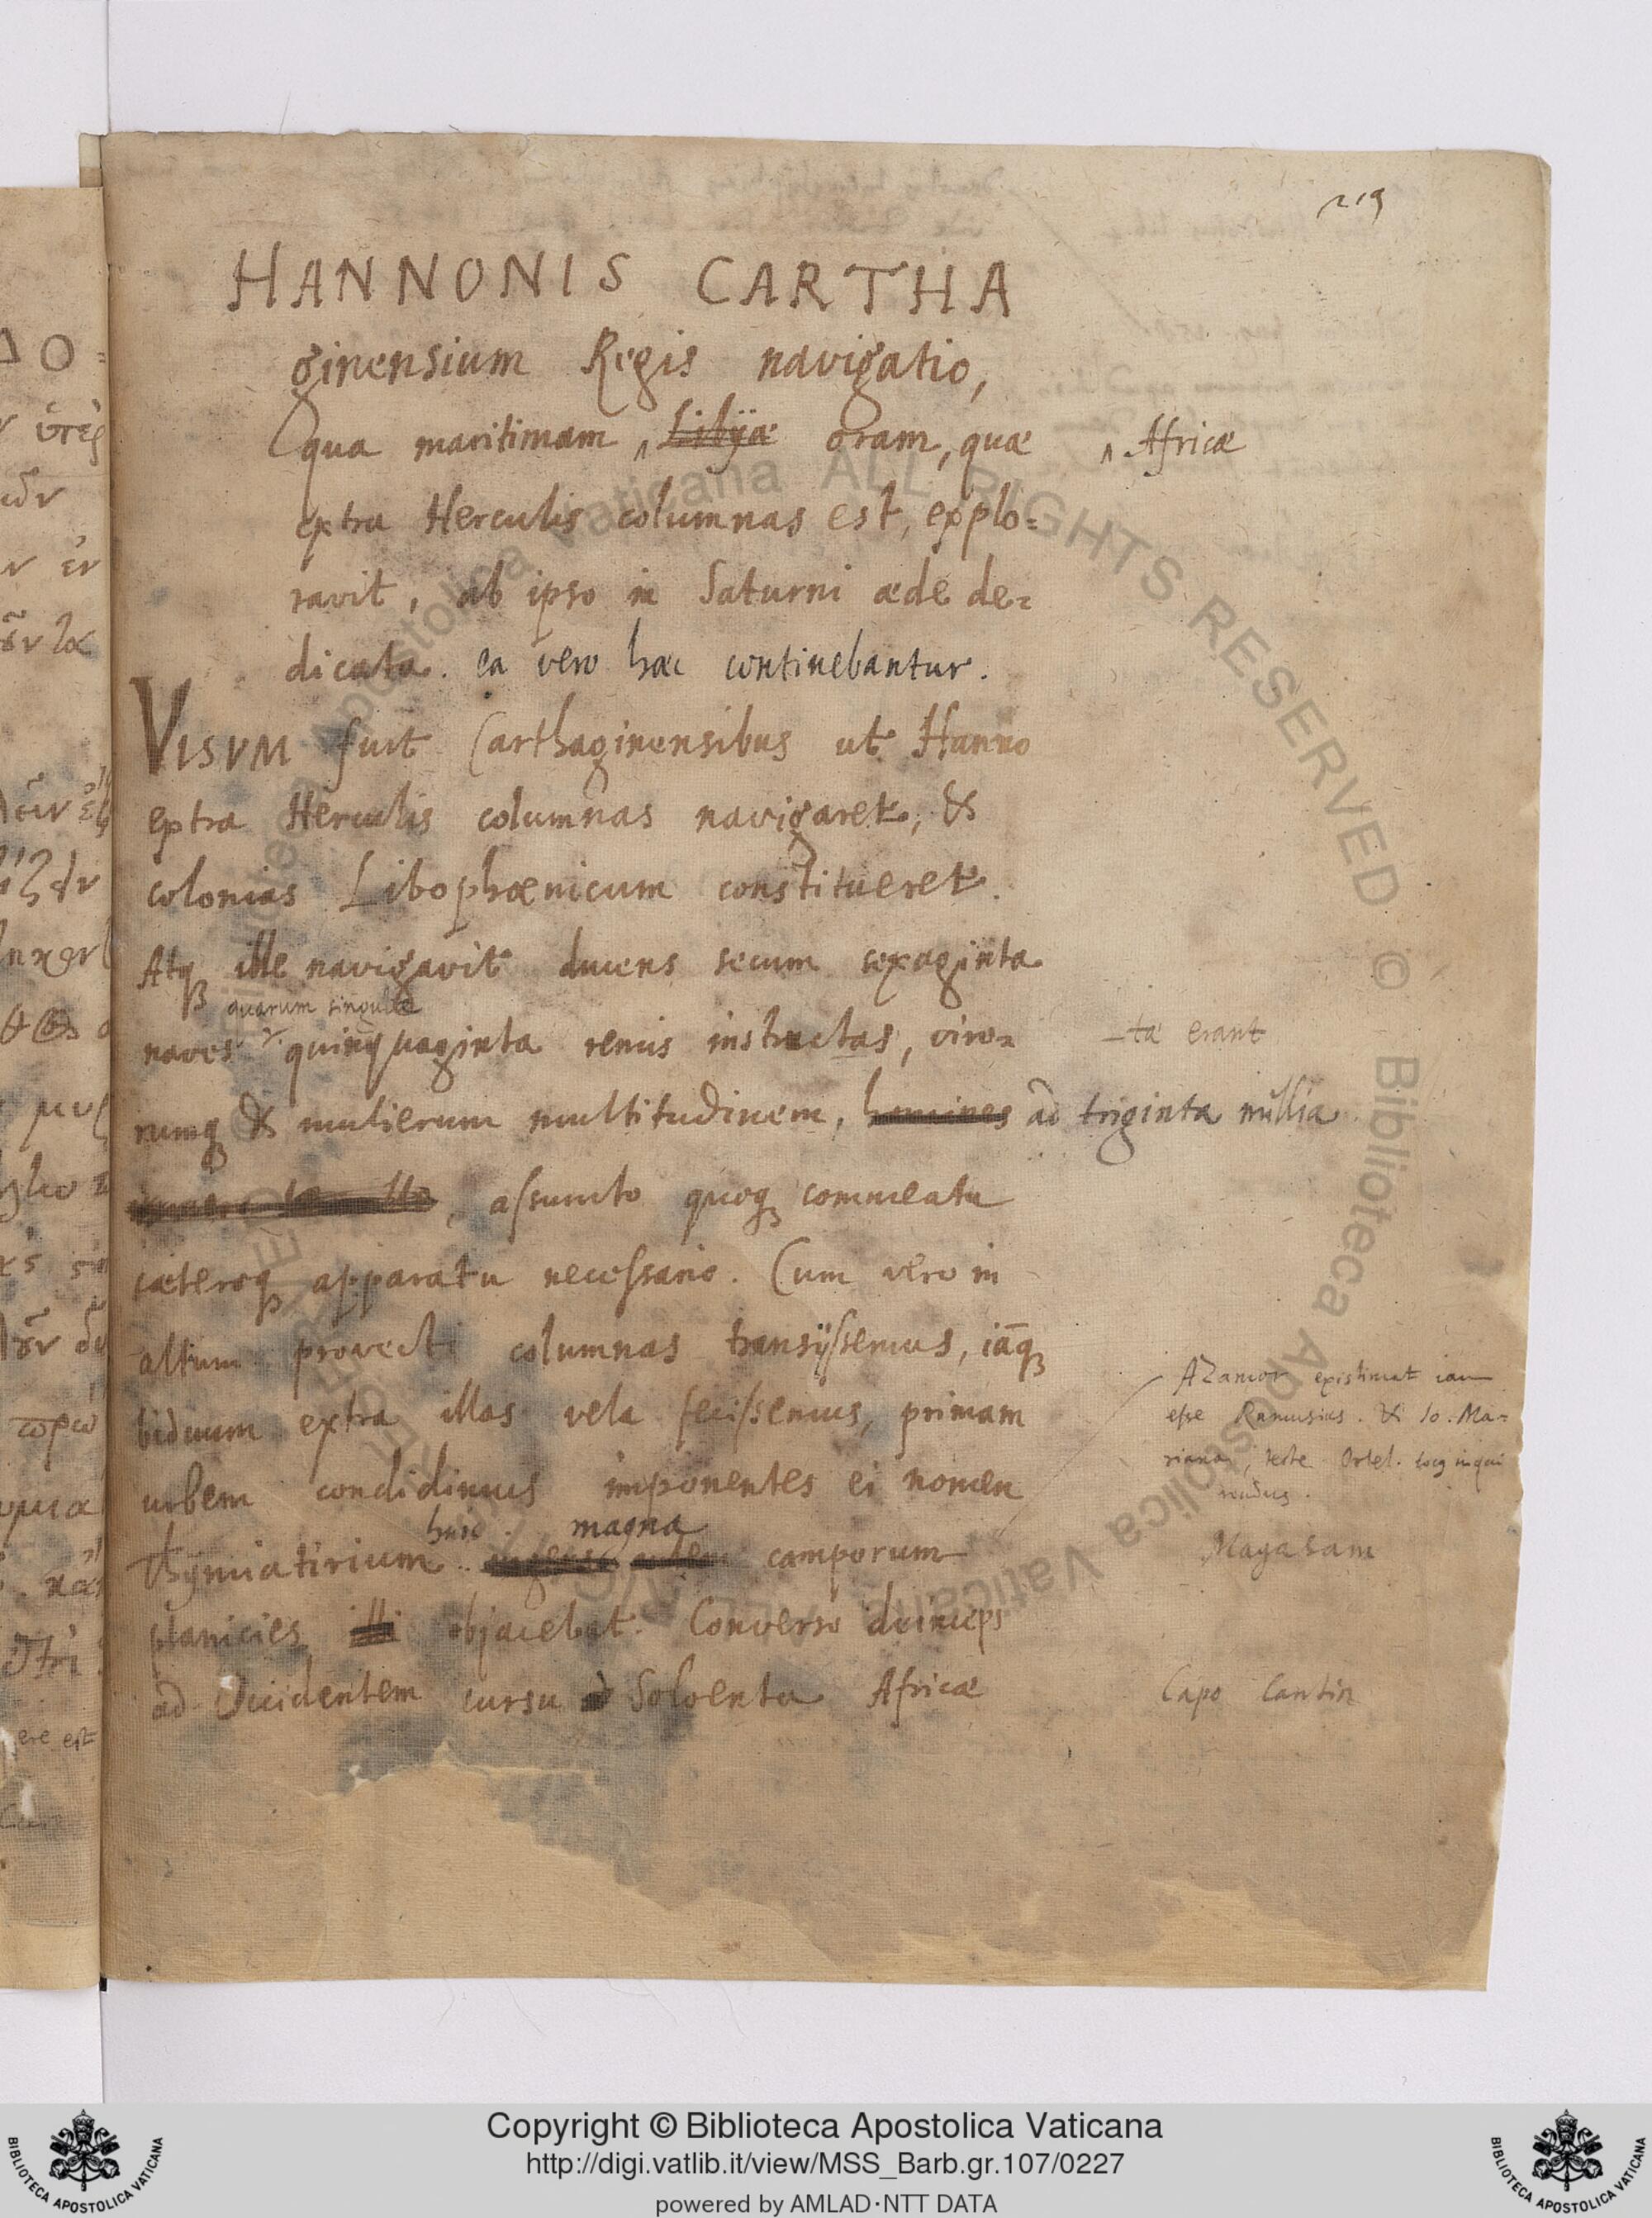 219
HANNONIS CARTHA
ginensium Regis navigatio,
qua maritimam ‸ Libÿæ oram, quæ
‸ Africæ
extra Herculis columnas est, explo=
ravit, ab ipso in Saturni æde de=
dicata. ea vero hæc continebantur.
VISVM fuit Carthaginensibus ut Hanno
extra Herculis columnas navigaret, &
colonias Libophœnicum constitueret.
Atqꝫ ille navigavit ducens secum sexaginta
quarum singulæ
naves quinquaginta remis instructas, viro=
—tæ erant
rumqꝫ & mulierum multitudinem, homines ad triginta millia
, assumto quoqꝫ commeatu
cæteroqꝫ apparatu necessario. Cum vero in
altum provecti columnas transijssemus, iāqꝫ
biduum extra illas vela fecissemus, primam
urbem condidimus imponentes ei nomen
Azamor existimat iam
esse Ramusius. & Io. Ma=
riana, teste Ortel.
huic magna
Thymiatirium. camporum
Magasam
planicies illi objacebat. Converso deinceps
ad Occidentem cursu ad Soloenta Africæ
Capo Cantin
ΔΟ=
ere est
Biblioteca Apostolica Vaticana ALL RIGHTS RESERVED © Biblioteca Apostolica Vaticana
BIBLIOTECA APOSTOLICA VATICANA
Copyright © Biblioteca Apostolica Vaticana
http://digi.vatlib.it/view/MSS_Barb.gr.107/0227
powered by AMLAD·NTT DATA
BIBLIOTECA APOSTOLICA VATICANA